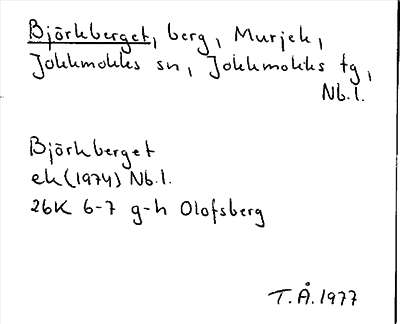 Björkberget, berg, Murjek,
Jokkmokks sn, Jokkmokks tg,
Nb.l.
Björkberget
ek (1974) Nb.l.
26K 6-7 g-h Olofsberg
T.Å. 1977